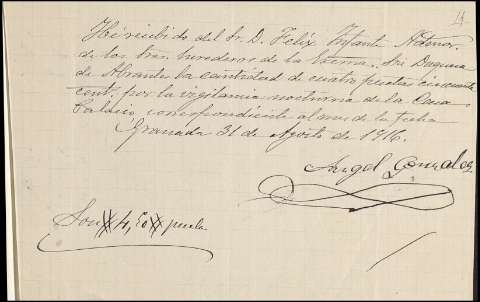 11
He recibido del Sr. D. Felix Infante Admor.
de los Sres. herederos de la Excma. Sra Duquesa
de Abrantes la cantidad de cuatro pesetas cincuenta
cent. por la vigilancia nocturna de la Casa
Palacio correspondiente al mes de la fecha
Granada 31 de Agosto de 1916.
Angel Gonzalez
Son # 4,50 # pesetas